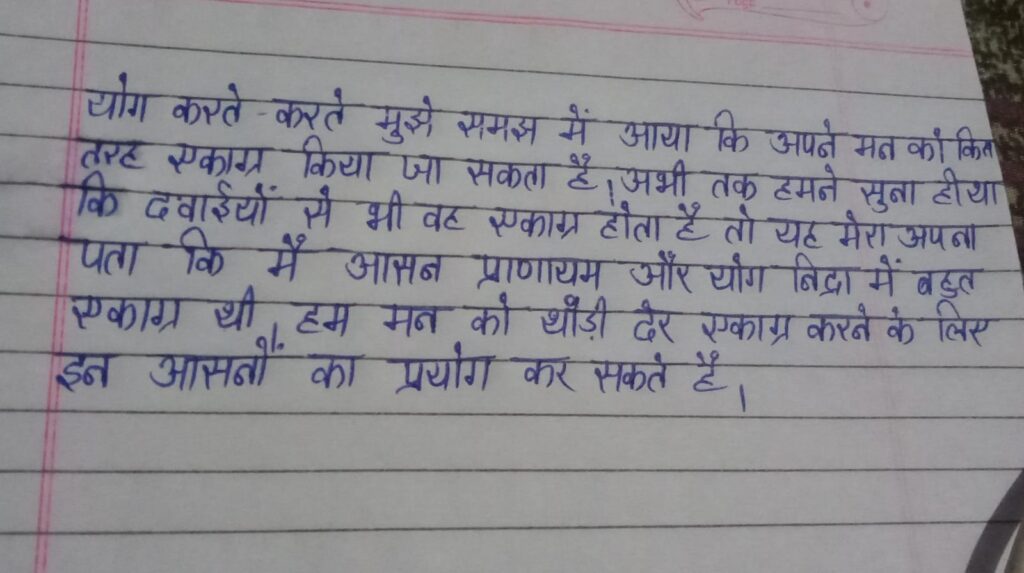 योग करते-करते मुझे समझ में आया कि अपने मन को किस
तरह एकाग्र किया जा सकता है। अभी तक हमने सुना ही था
कि दवाईयों से भी वह एकाग्र होता है तो यह मेरा अपना
पता कि मैं आसन प्राणायम और योग निद्रा में बहुत
एकाग्र थी। हम मन को थोड़ी देर एकाग्र करने के लिए
इन आसनों का प्रयोग कर सकते है।